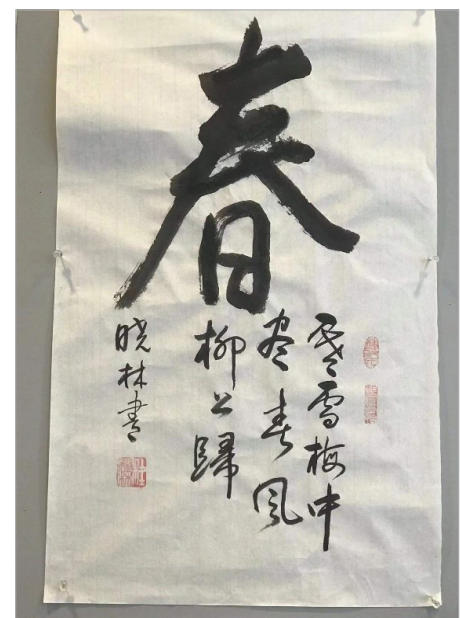 春
寒雪梅中
尽春风
柳上歸
晓林书